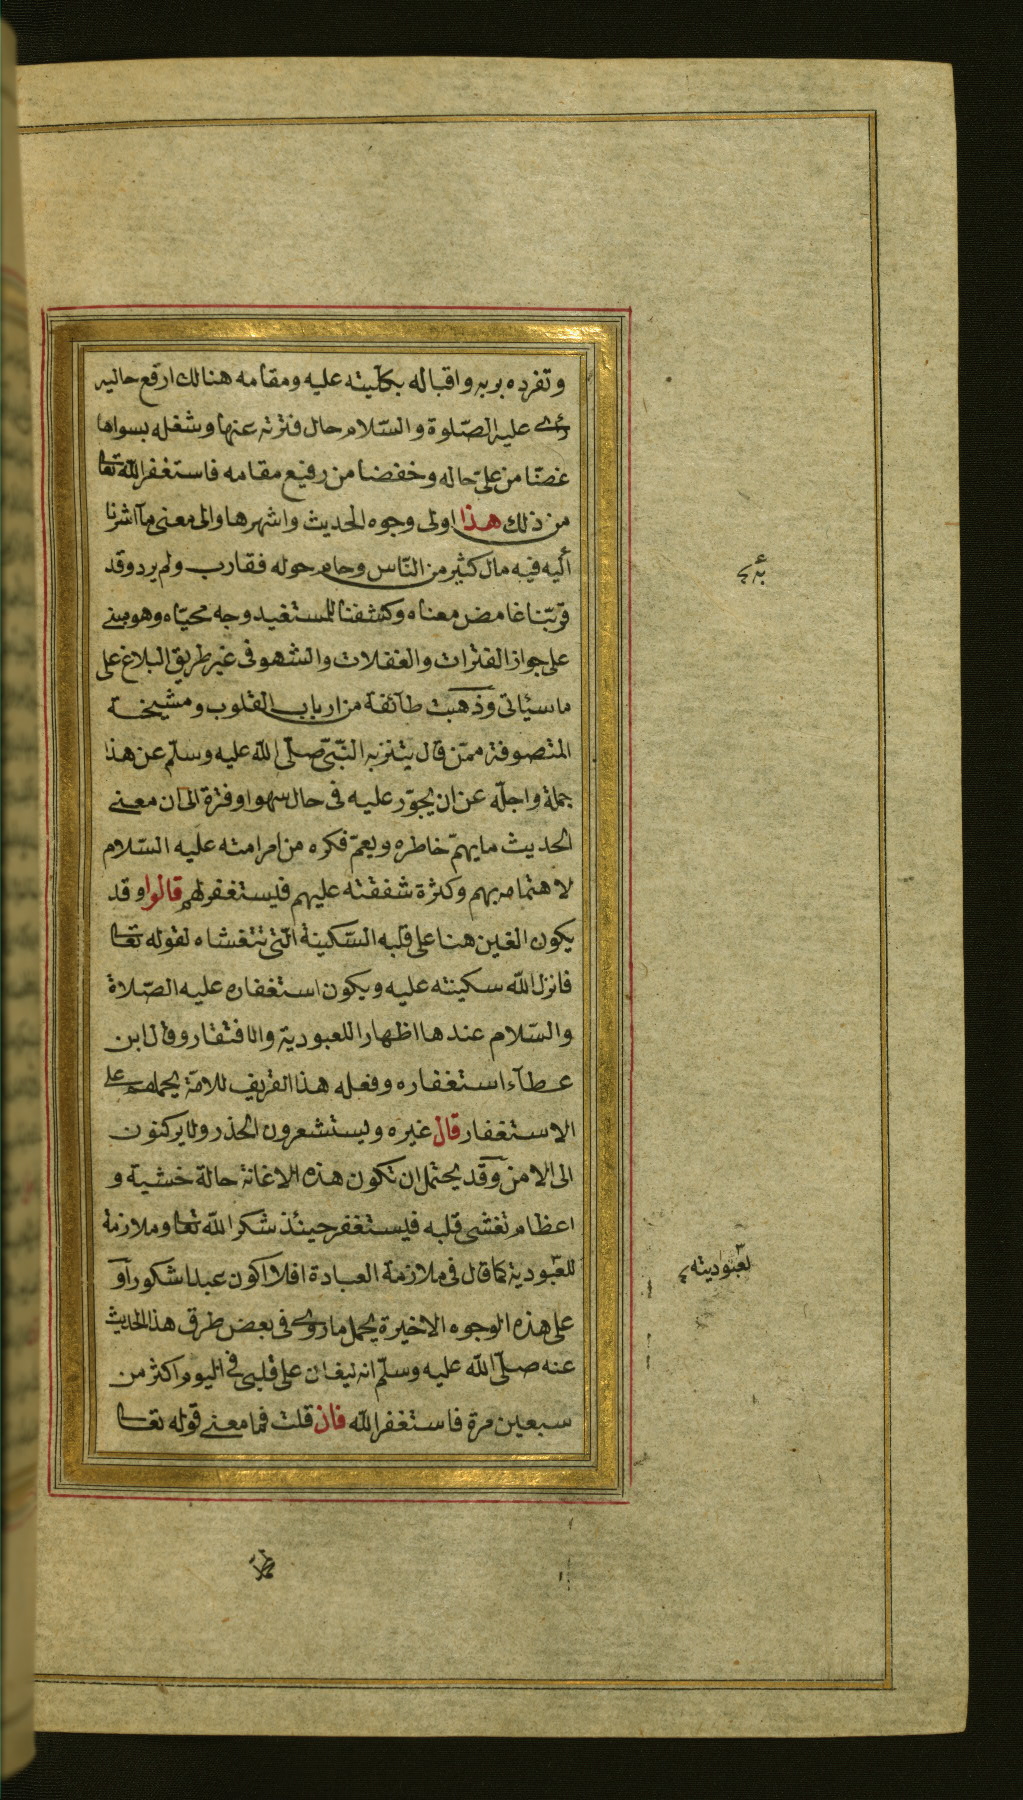 وتفرده بربه واقباله بكليته عليه ومقامه هنالك ارفع حاليه
راى عليه الصّلوة والسّلام حال فترته عنها وشغله بسواها
غضّا من علىّ حاله وخفضا من رفيع مقامه فاستغفر الله تعا
من ذلك هذا اولى وجوه الحديث واشهرها والى معنى مآ اشرنا
اليه فيه مال كثير من النّاس وحام حوله فقارب ولم يرد وقد
قرّبنا غامض معناه وكشفنا للمستفيد وجه محيّاه وهو مبنى
على جواز الفترات والغفلات والسّهو فى غير طريق البلاغ على
ما سيأتى وذهبت طآئفة من ارباب القلوب ومشيخة
المتصوفة ممّن قال يتنزيه النّبىّ صلّى الله عليه وسلّم عن هذا
جملة واجلّه عن ان يجوّز عليه فى حال سهو او فترة الى ان معنى
الحديث ما يهمّ خاطره ويعمّ فكره من امر امته عليه السّلام
لاهتمامه بهم وكثرة شفقته عليهم فيستغفر لهم قالوا وقد
يكون الغين هنا على قلبه السّكينة الّتى تتغشاه لقوله تعا
فانزل الله سكينته عليه ويكون استغفاره عليه الصّلاة
والسّلام عندها اظهارا للعبودية والافتقار وقال ابن
عطآء استغفاره وفعله هذا تعريف للامّة يحملهم على
الاستغفار قال غيره ويستشعرون الحذر ولا يركنون
الى الامن وقد يحتمل ان تكون هذه الاغانة حالة خشية و
اعظام تغشى قلبه فيستغفر حينئذ شكرا لله تعا وملازمة
للعبودية كما قال فى ملازمة العبادة افلا اكون عبدا شكورا و
على هذه الوجوه الاخيرة يحمل ما روى فى بعض طرق هذا الحديث
عنه صلّى الله عليه وسلّم انه ليغان على قلبى فى اليوم اكثر من
سبعين مرة فاستغفر الله فان قلت فما معنى قوله تعا
لعبوديته